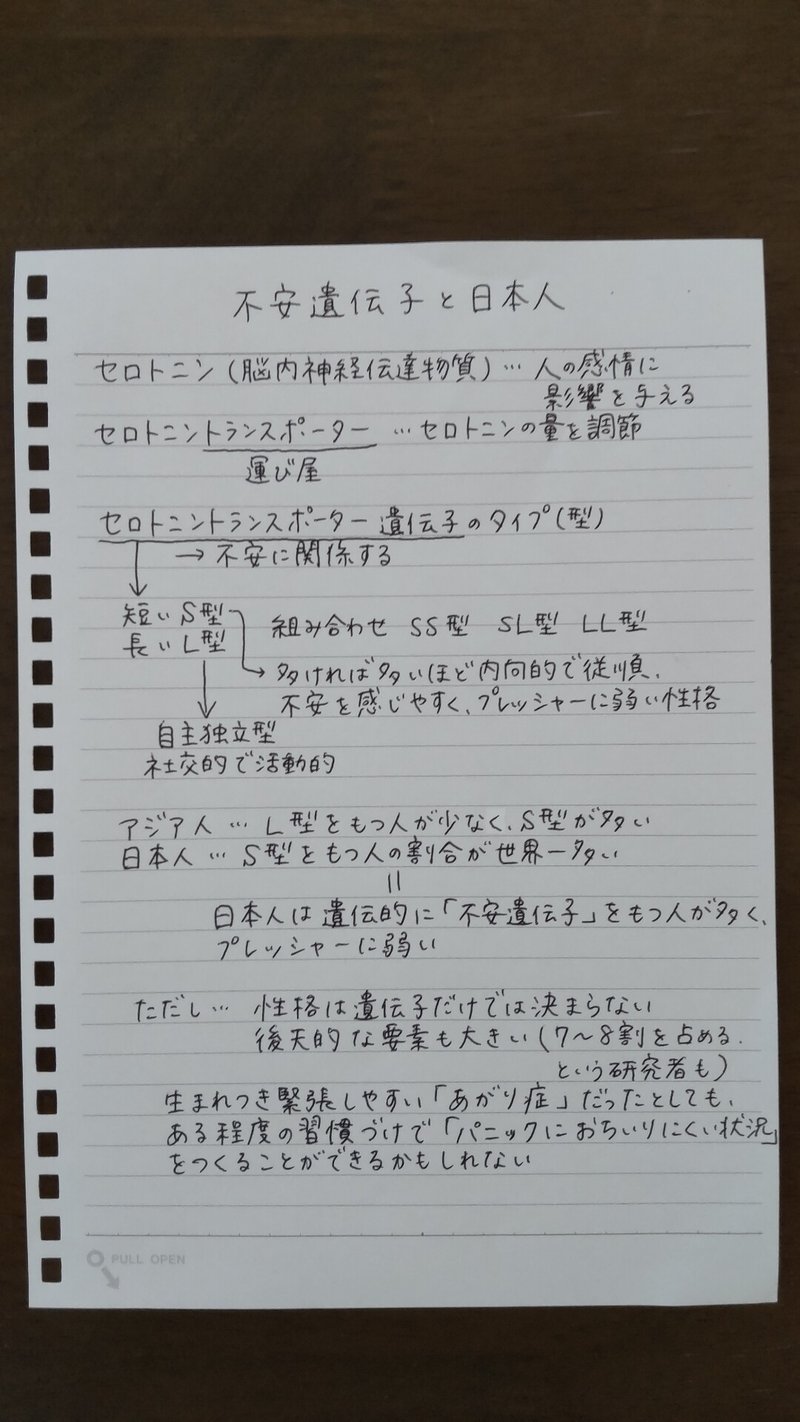 不安遺伝子と日本人
セロトニン(脳内神経伝達物質)… 人の感情に
影響を与える
セロトニントランスポーター …セロトニンの量を調節
運び屋
セロトニントランスポーター遺伝子のタイプ(型)
→不安に関係する
短いS型
長いL型
組み合わせ SS型 SL型 LL型
→多ければ多いほど内向的で従順、
不安を感じやすく、プレッシャーに弱い性格
自主独立型
社交的で活動的
アジア人… L型をもつ人が少なく、S型が多い
日本人… S型をもつ人の割合が世界一多い
||
日本人は遺伝的に「不安遺伝子」をもつ人が多く、
プレッシャーに弱い
ただし… 性格は遺伝子だけでは決まらない
後天的な要素も大きい(7〜8割を占める
という研究者も)
生まれつき緊張しやすい「あがり症」だったとしても、
ある程度の習慣づけで「パニックにおちいりにくい状況」
をつくることができるかもしれない
PULL OPEN